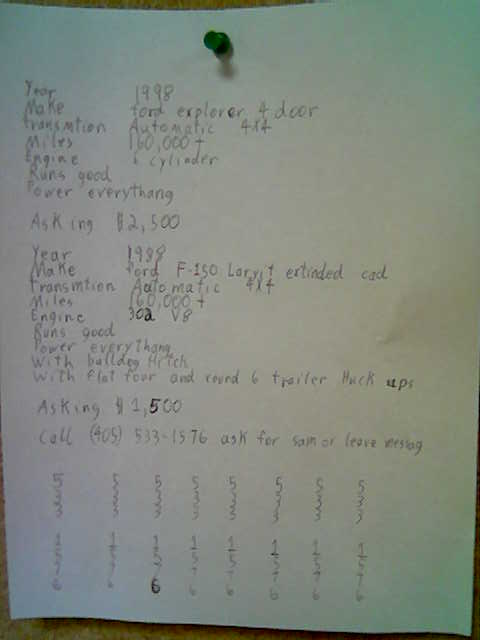 Year 1998
Make ford explorer 4 door
transmtion Automatic 4x4
Miles 160,000 +
Engine 6 cylinder
Runs good
Power everythang
Asking $2,500
Year 1988
Make ford F-150 Laryit extinded cad
transmtion Automatic 4x4
Miles 160,000 +
Engine 302 V8
Runs good
Power everythang
With bulldog Hitch
With flat four and round 6 trailer Huck ups
Asking $1,500
Call (405) 533-1576 ask for sam or leave messag
5 5 5 5 5 5 5 5
3 3 3 3 3 3 3 3
3 3 3 3 3 3 3 3
1 1 1 1 1 1 1 1
5 5 5 5 5 5 5 5
7 7 7 7 7 7 7 7
6 6 6 6 6 6 6 6